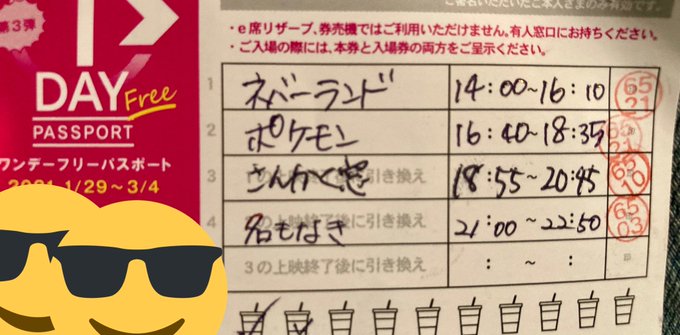 第3弾
DAY Free
PASSPORT
ワンデーフリーパスポート
2021.1/29~3/4
・e席リザーブ、券売機ではご利用いただけません。有人窓口にお持ちください。
・ご入場の際には、本券と入場券の両方をご呈示ください。
1 ネバーランド 14:00~16:10 65 21
2 ポケモン 16:40~18:35 65 21
3 さんかく窓 18:55~20:45 65 10
1の上映終了後に引き換え
4 名もなき 21:00~22:50 65 03
2の上映終了後に引き換え
3の上映終了後に引き換え : ~ :